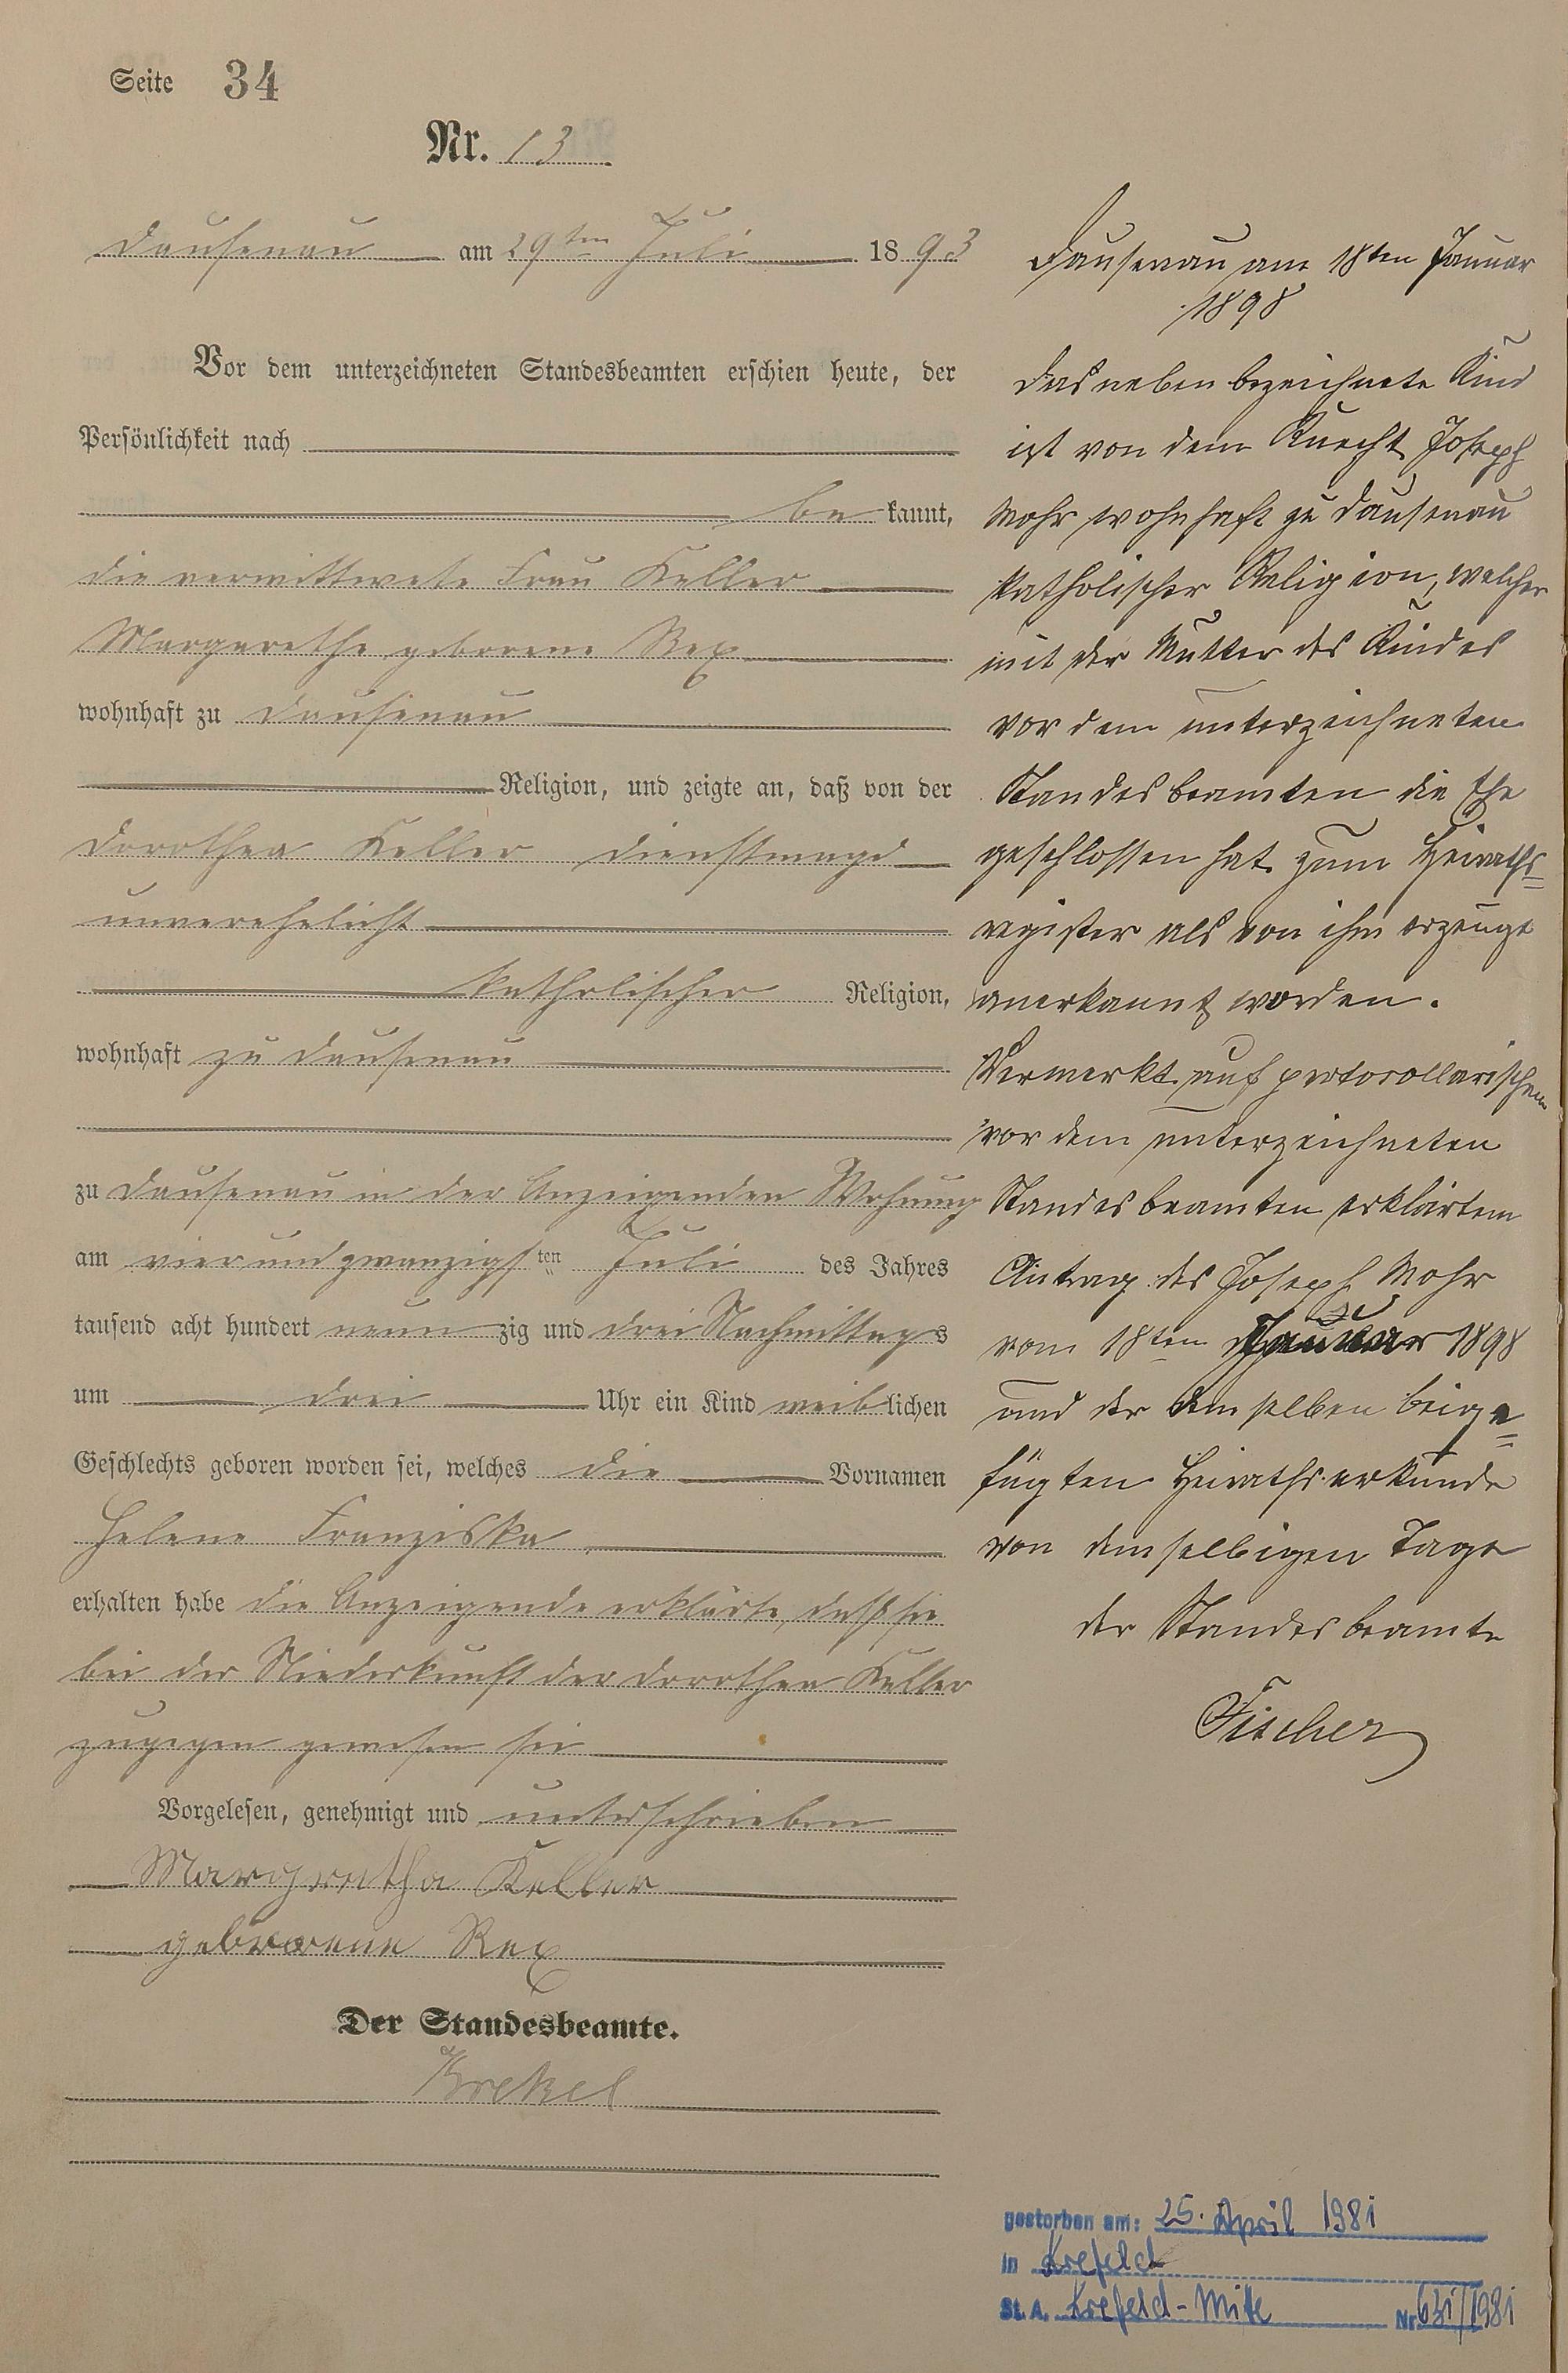 Seite 34
Nr. 13
Dausenau am 29ten Juli 1893
Vor dem unterzeichneten Standesbeamten erschien heute, der
Persönlichkeit nach
be kannt,
die verwittwete Frau Keller
Margarethe geborene Rex
wohnhaft zu Dausenau
Religion, und zeigte an, daß von der
Dorothea Keller Dienstmagd
unverehelicht
katholischer Religion,
wohnhaft zu Dausenau
zu Dausenau in der Anzeigenden Wohnung
am vierundzwanzigsten Juli des Jahres
tausend acht hundert neun zig und drei Nachmittags
um drei Uhr ein Kind weiblichen
Geschlechts geboren worden sei, welches die Vornamen
Helene Franziska
erhalten habe die Anzeigende erklärte, daß sie
bei der Niederkunft der Dorothea Keller
zugegen gewesen sei
Vorgelesen, genehmigt und unterschrieben
Margretha Keller
geborene Rex
Der Standesbeamte.
Krekel
Dausenau am 18ten Januar
1898
Das neben bezeichnete Kind
ist von dem Knecht Joseph
Mohr wohnhaft zu Dausenau
katholischer Religion, welcher
mit der Mutter des Kindes
vor dem unterzeichneten
Standesbeamten die Ehe
geschlossen hat zum Heiraths=
register als von ihm erzeugt
anerkannt worden.
Vermerkt auf protocollarischem
vor dem unterzeichneten
Standesbeamten erklärtem
Antrag des Joseph Mohr
vom 18ten Januar 1898
und der demselben beige=
fügten Heirathsurkunde
von demselbigen Tage
der Standesbeamte
Fischer
gestorben am: 25. April 1981
in Krefeld
St. A. Krefeld-Mitte Nr. 631/1981